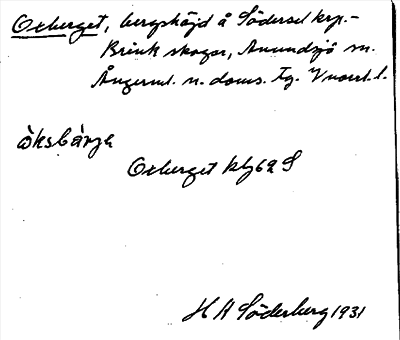 Oxberget, bergshöjd å Södersel krp.-
Brink skogar, Anundsjö sn.
Ångerml. n. doms. tg. Vnorrl. l.
òksbàrja
Oxberget kbl 62 S
H A Söderberg 1931